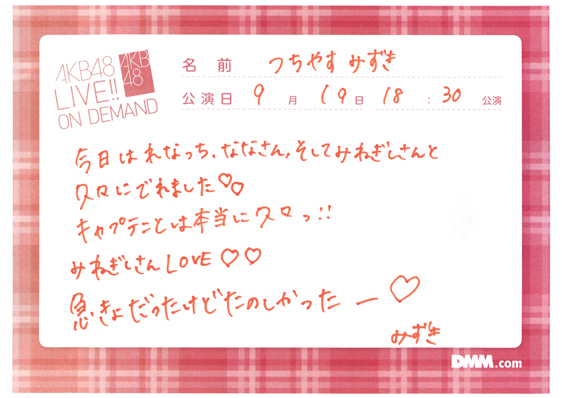 AKB48
LIVE!!
ON DEMAND
AKB
48
名 前 つちやす みずき
公演日 9 月 19 日 18 : 30 公演
今日は れなっち、ななさん、そしてみねぎしさんと
久々にでれました♡♡
キャプテンとは本当に久々っ!!
みねぎしさんLOVE♡♡
急きょだったけどたのしかったー♡
みずき
DMM.com